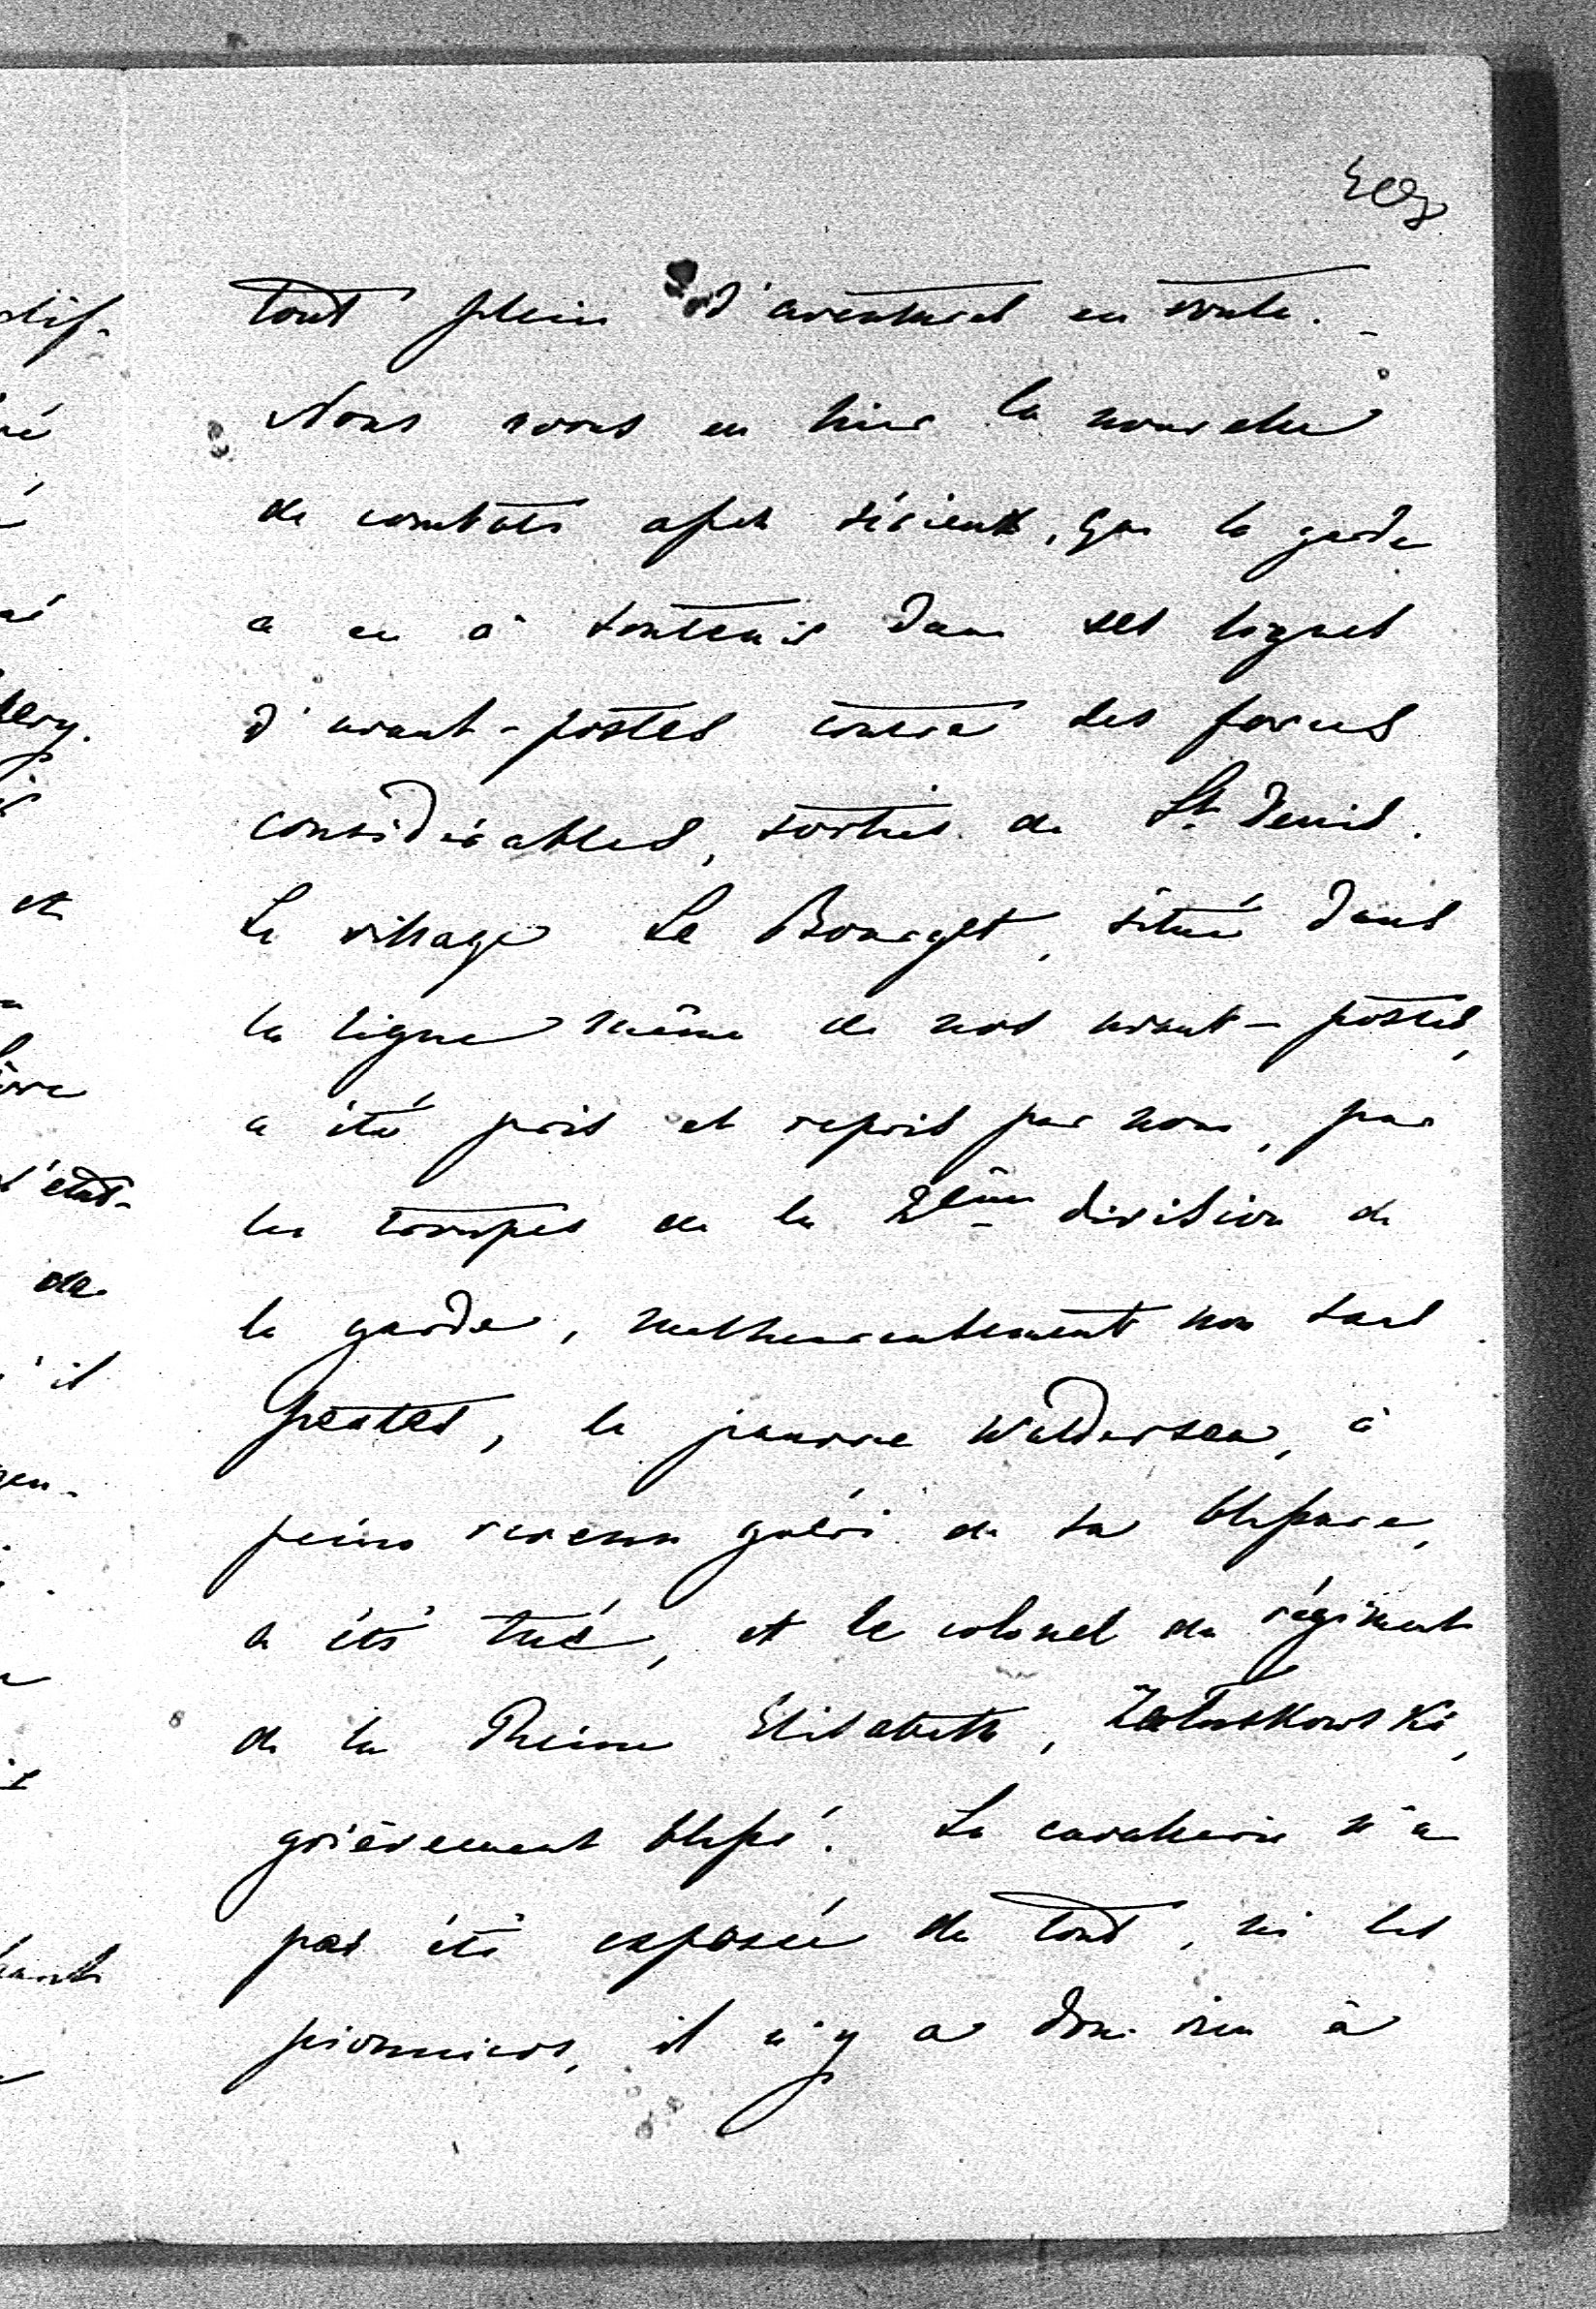 tout plein d'aventures en route. -
Nous avons eu hier la nouvelle
de combats assez sérieux, que la garde
a eu à soutenir dans ses lignes
d'avant-postes contre des forces
considérables, sorties de St. Denis.
Le village Le Bourget, situé dans
la ligne même de nos avant-postes,
a été pris et repris par nous, par
les troupes de la 2ème division de
la garde, malheureusement non sans
pertes, le pauvre Waldersee, à
peine revenu guéri de sa blessure,
a été tué, et le colonel du régiment
de la Reine Elisabeth, Zaluskowski,
grièvement blessé. La cavalerie n'a
pas été exposée du tout, ni les
pionniers, il n'y a donc rien à